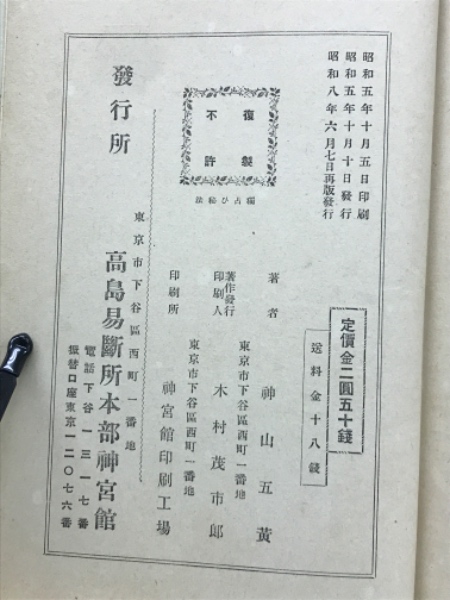 昭和五年十月五日印刷
昭和五年十月十日發行
昭和八年六月七日再版發行
定價金二圓五十錢
送料金十八錢
復製
不許
獨占ひ秘法
著者 神山五黃
東京市下谷區西町一番地
著作發行印刷人 木村茂市郎
東京市下谷區西町一番地
印刷所 神宮館印刷工場
東京市下谷區西町一番地
發行所 高島易斷所本部神宮館
電話下谷一三一七番
振替口座東京一二〇七六番